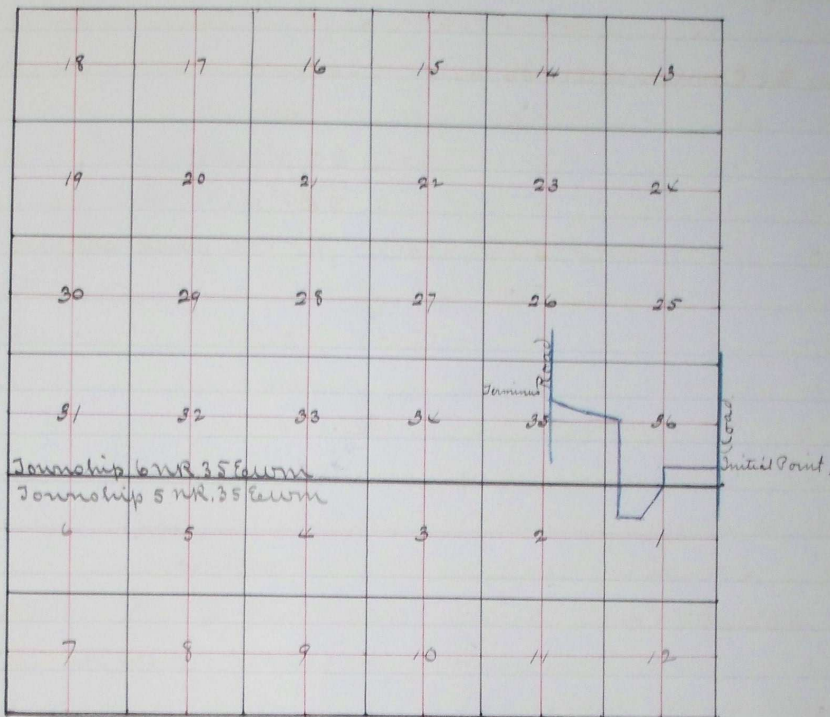 18 17 16 15 14 13
19 20 21 22 23 24
30 29 28 27 26 25
Road
Terminus
31 32 33 34 35 36
Road
Initial Point
Township 6 N R. 35 E W M
Township 5 N R. 35 E W M
6 5 4 3 2 1
7 8 9 10 11 12